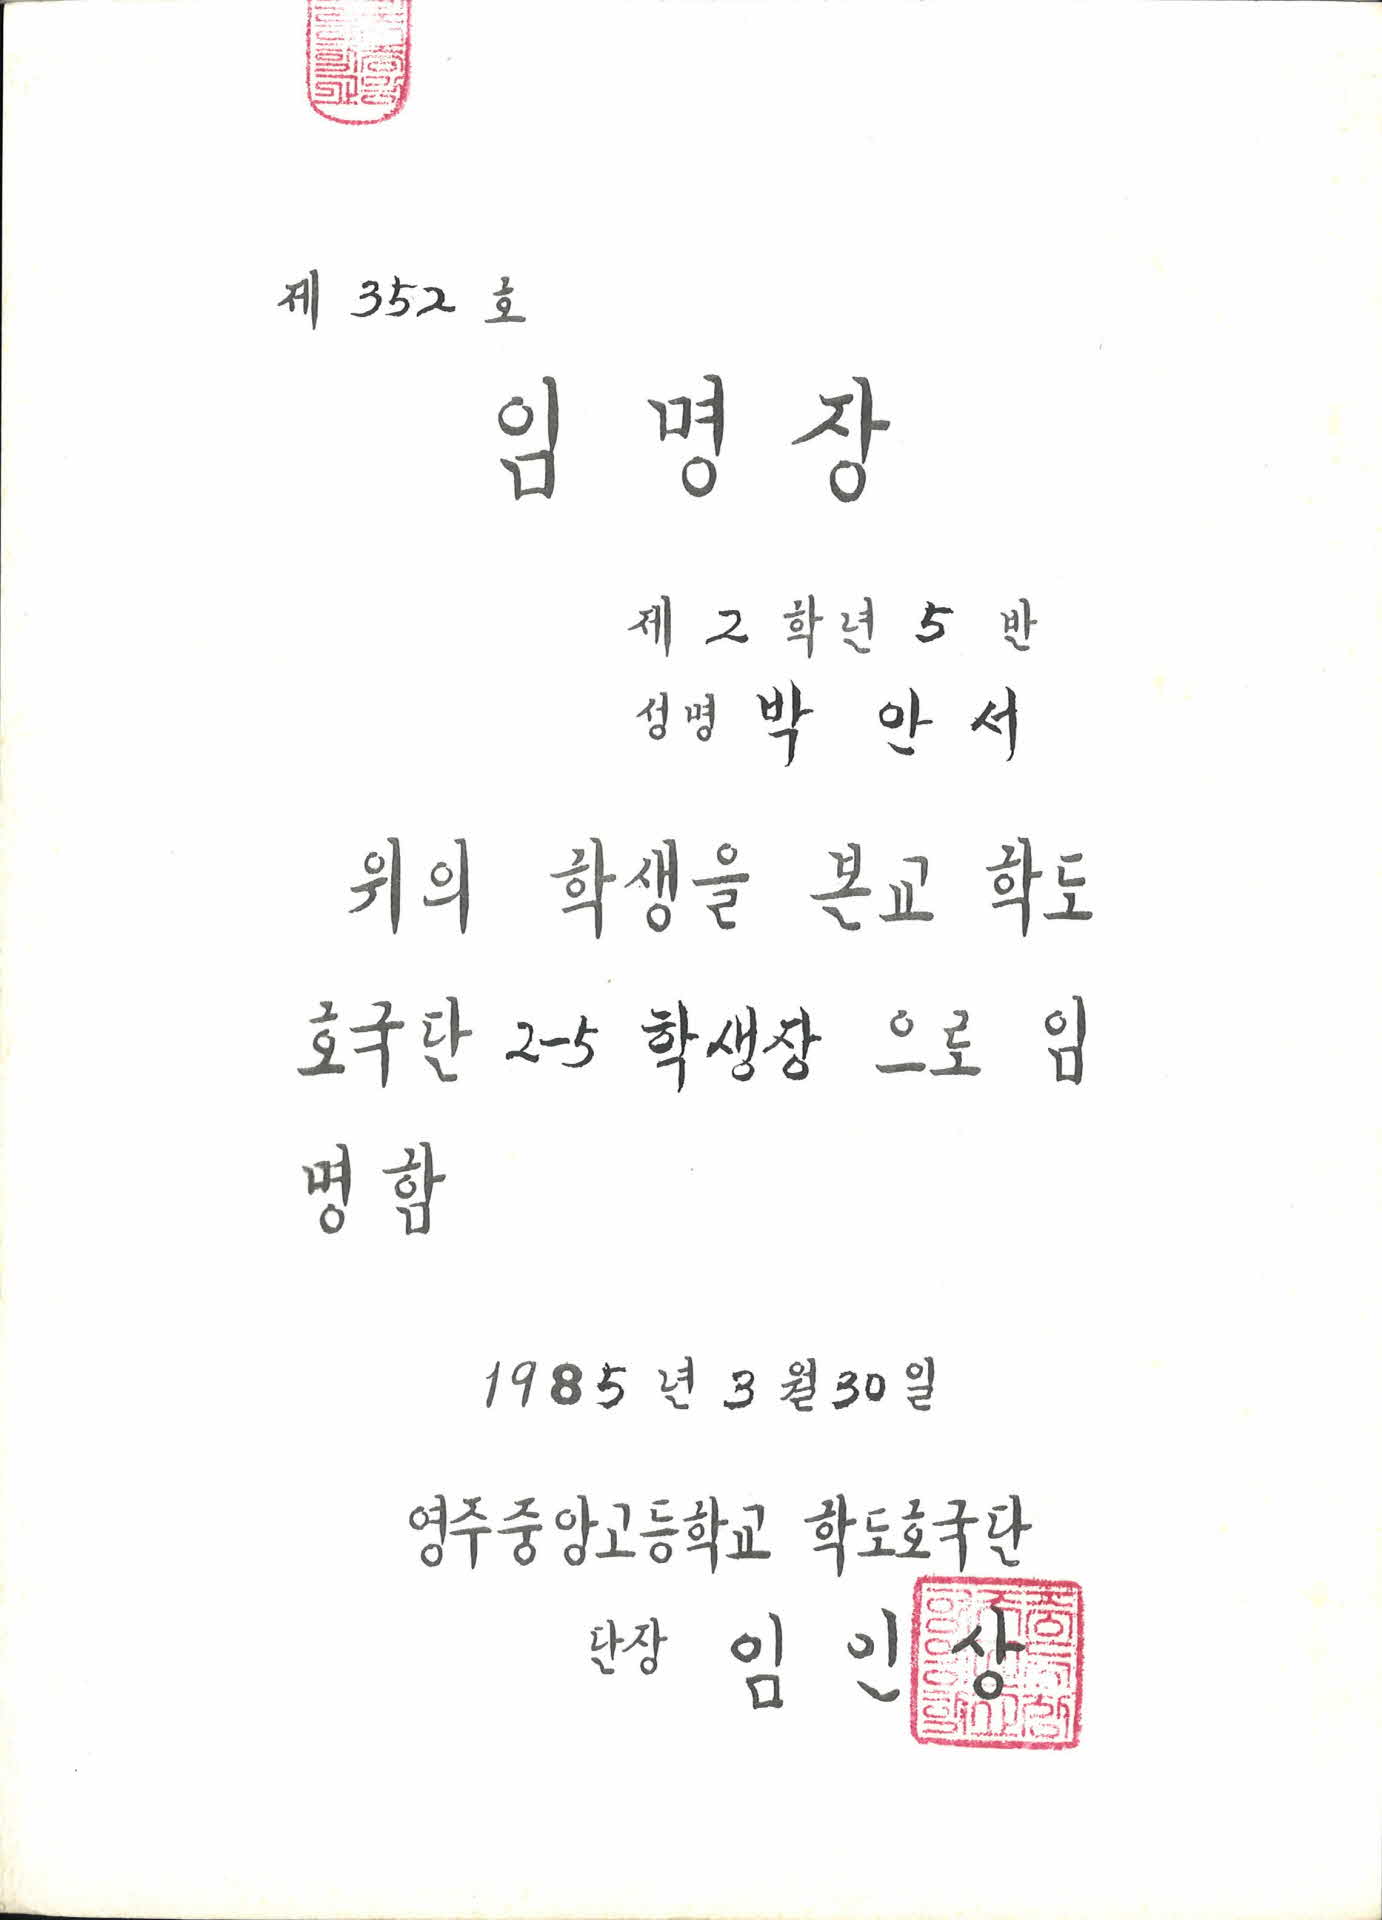 제 352 호
임 명 장
제 2 학년 5 반
성명 박 안 서
위의 학생을 본교 학도
호국단 2-5 학생장 으로 임
명함
1985 년 3 월 30 일
영주중앙고등학교 학도호국단
단장 임 인 상